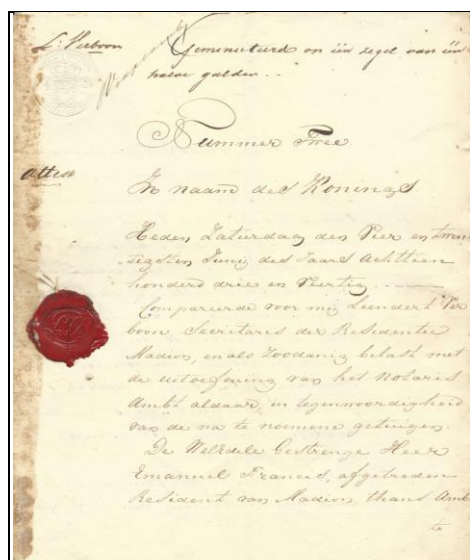 L: Verboon
Geminuteerd on één zegel van één
halve gulden..
Nummer Twee.
In naam des Konings
Heden Zaturdag den Vier en twin
tigsten Junij des Jaars Achttien
honderd drie en Veertig
Compareerde voor mij Leendert Ver
boon, Secretaris der Residentie
Madion, en als Zoodanig belast met
de uitoefening van het Notaris
Ambt aldaar, in tegenwoordigheid
van de na te noemene getuigen.
De WelEdele Gestrenge Heer
Emanuel Francis, afgetreden
Resident van Madion, thans Amb
te